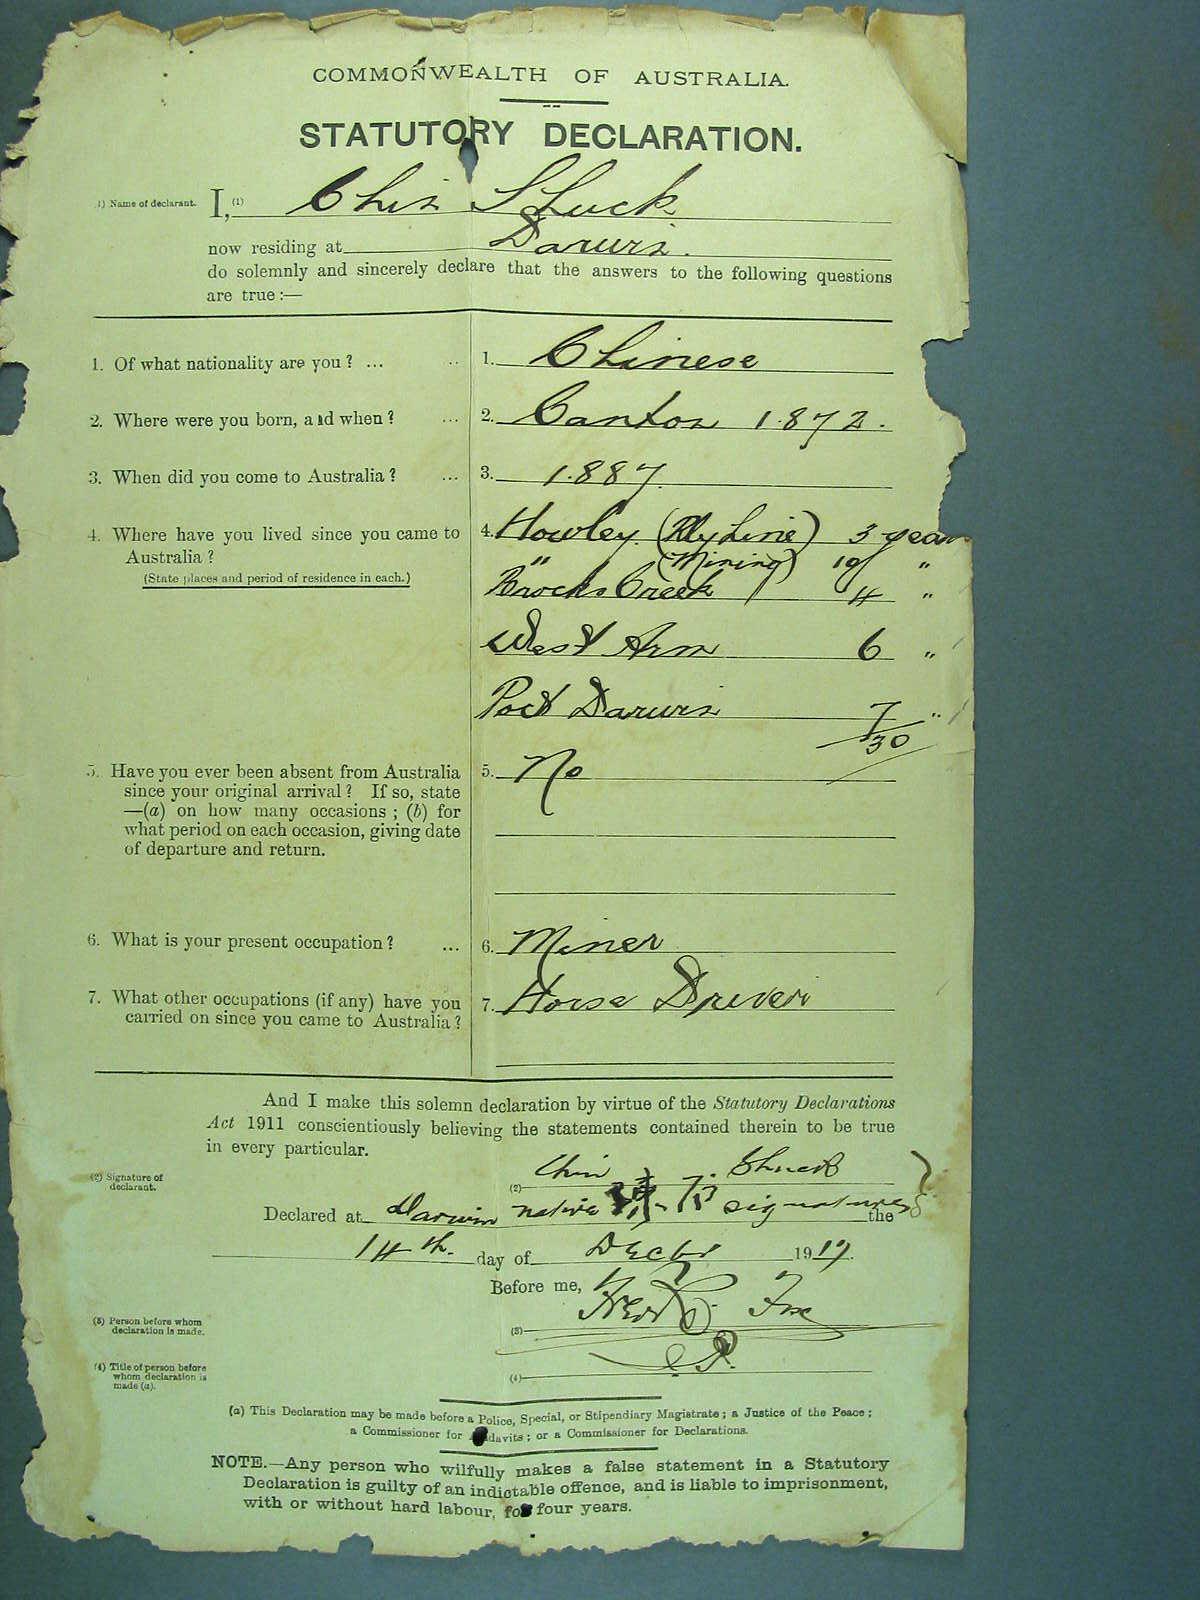 COMMONWEALTH OF AUSTRALIA.
STATUTORY DECLARATION.
1) Name of declarant. I, (1) Chin Shuck
now residing at Darwin.
do solemnly and sincerely declare that the answers to the following questions
are true :—
1. Of what nationality are you ? ... .. 1. Chinese
2. Where were you born, and when ? ... 2. Canton 1.872.
3. When did you come to Australia ? ... 3. 1.887.
4. Where have you lived since you came to 4. Howley (Rly Line) 3 years
Australia ? " (Mining) 10 "
(State places and period of residence in each.) Brocks Creek 4 "
West Arm 6 "
Port Darwin 7 "
30
5. Have you ever been absent from Australia 5. No
since your original arrival ? If so, state
—(a) on how many occasions ; (b) for
what period on each occasion, giving date
of departure and return.
6. What is your present occupation ? ... 6. Miner
7. What other occupations (if any) have you 7. Horse Driver
carried on since you came to Australia ?
And I make this solemn declaration by virtue of the Statutory Declarations
Act 1911 conscientiously believing the statements contained therein to be true
in every particular.
(2) Signature of
declarant.
(2) Chin Shuck
Declared at Darwin native signature the
14th. day of Decbr 1917.
Before me,
(3) Person before whom
declaration is made.
(3) Fred C. Fox
(4) Title of person before
whom declaration is
made (a).
(4) J.P.
(a) This Declaration may be made before a Police, Special, or Stipendiary Magistrate ; a Justice of the Peace ;
a Commissioner for Affidavits ; or a Commissioner for Declarations.
NOTE.—Any person who wilfully makes a false statement in a Statutory
Declaration is guilty of an indictable offence, and is liable to imprisonment,
with or without hard labour, for four years.